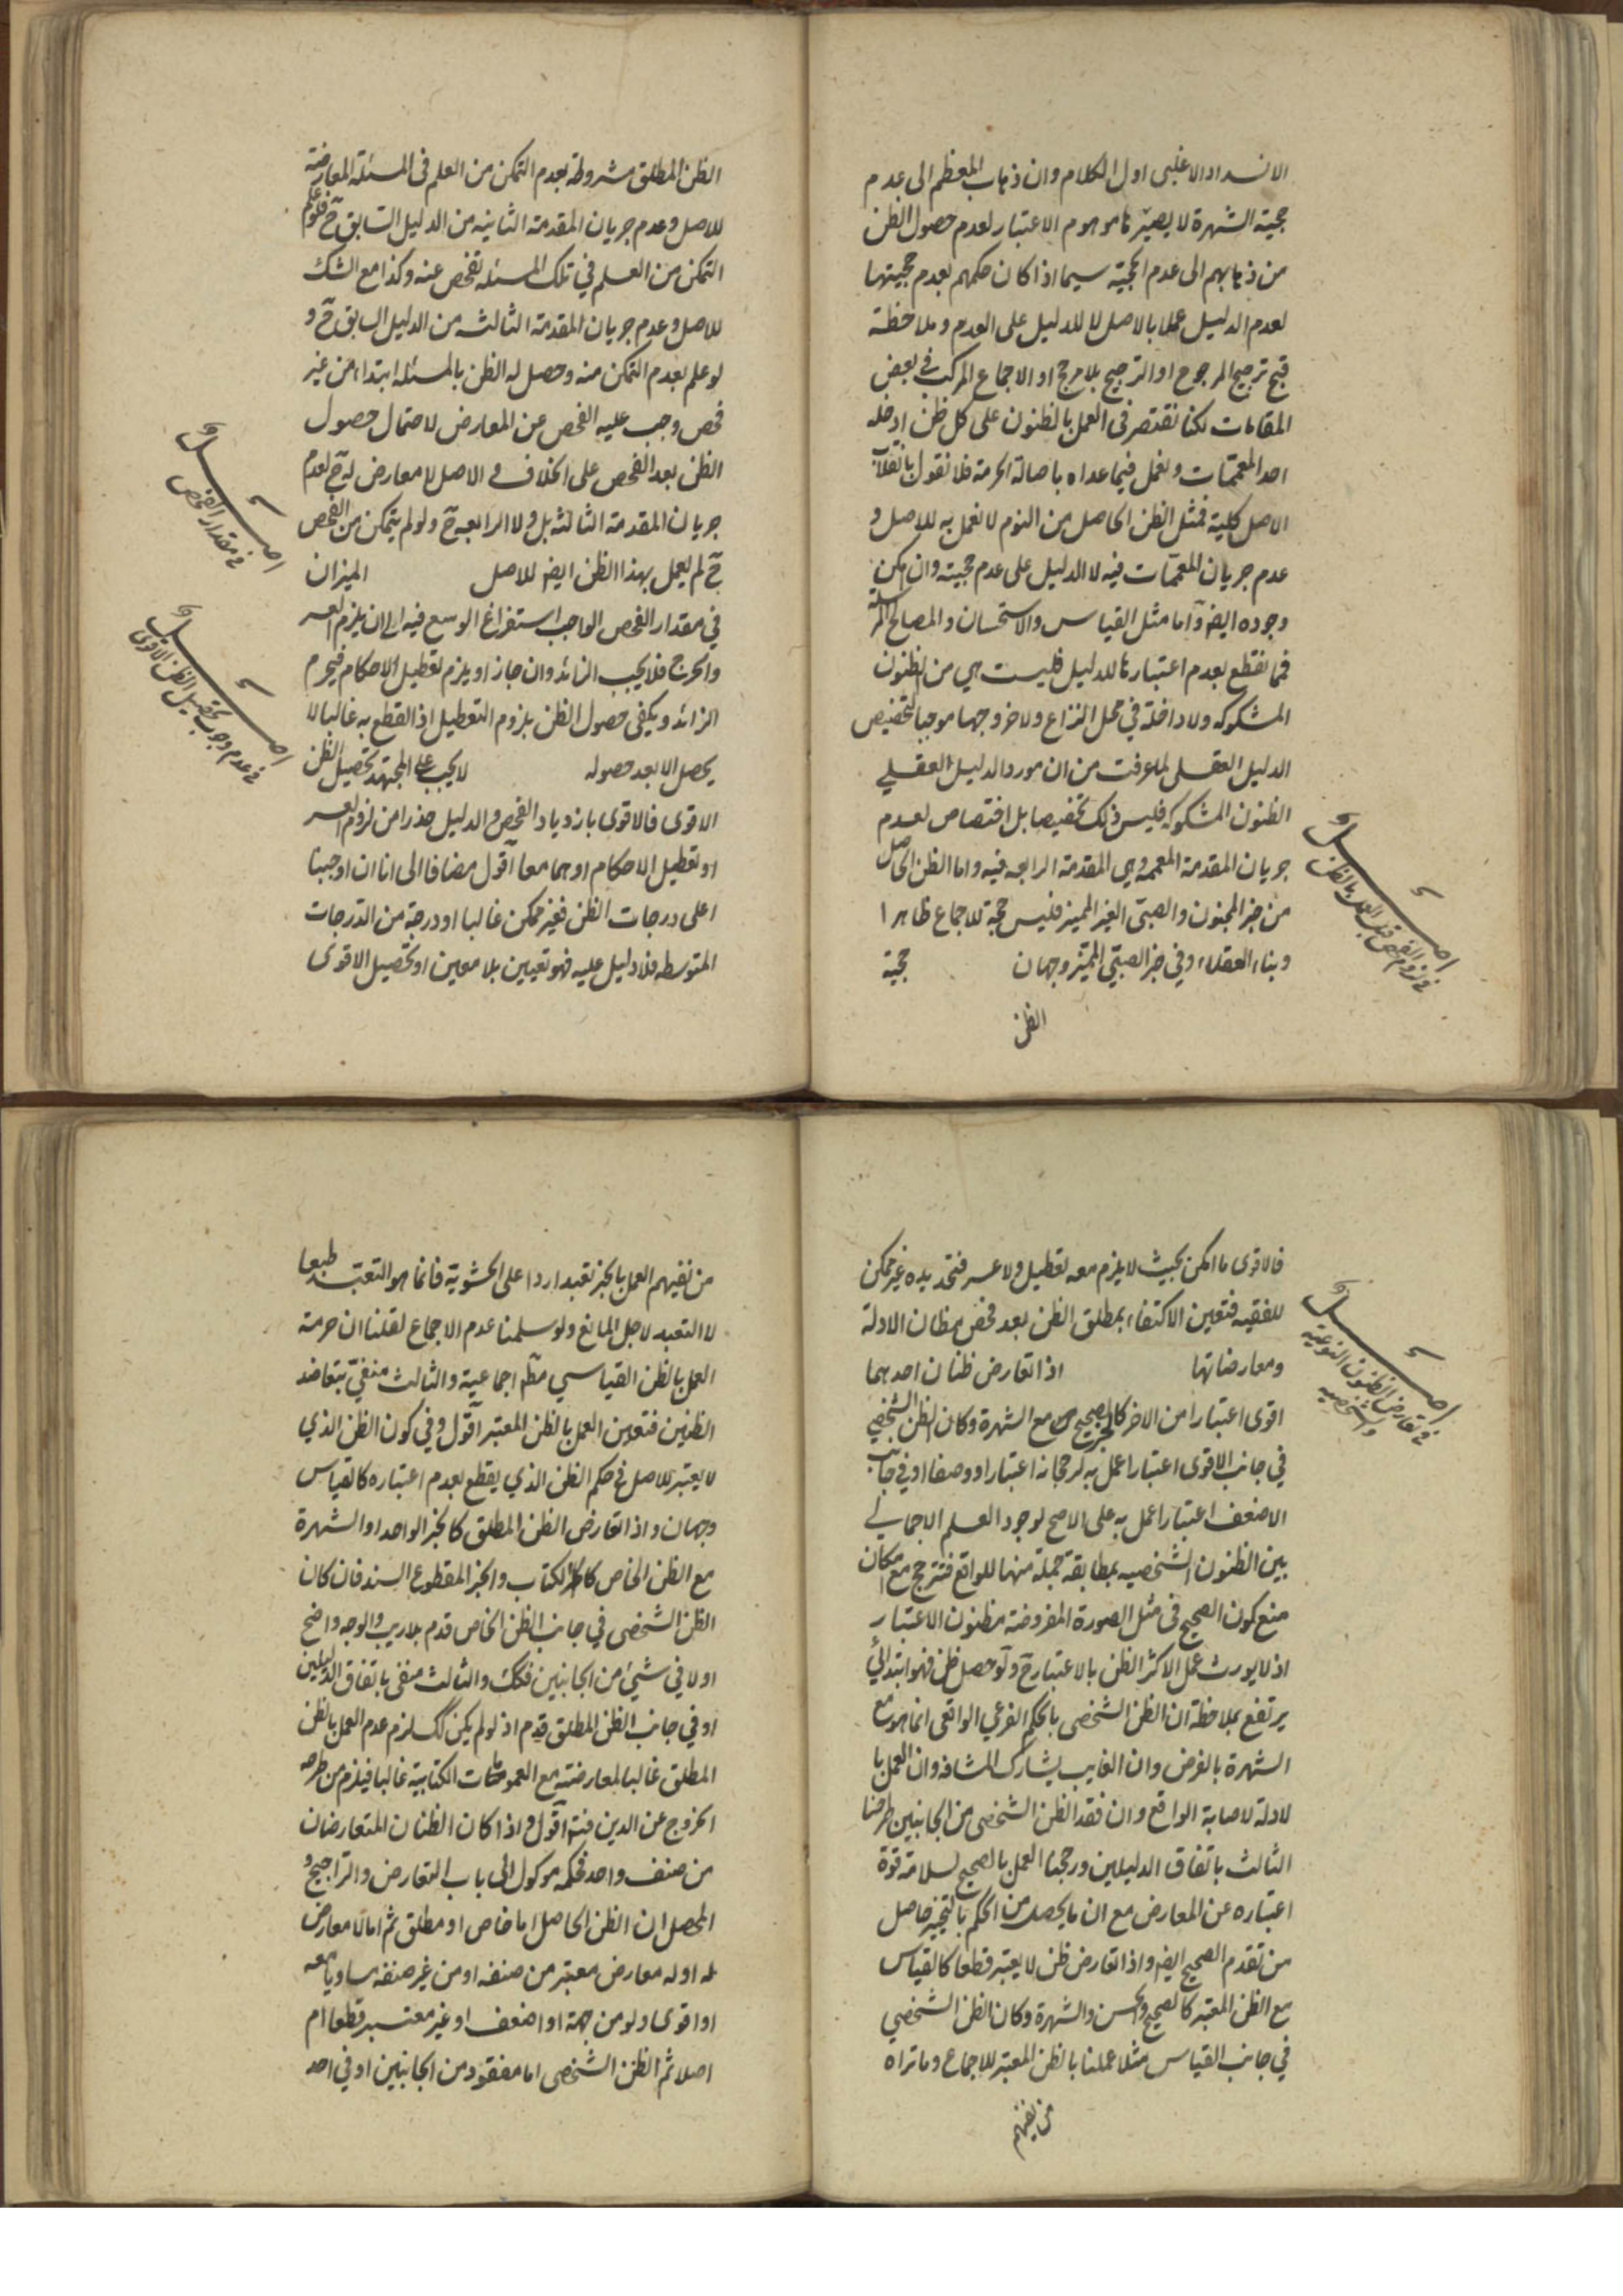 الانسداد الاغلبى اول الكلام وان ذهاب المعظم الى عدم
حجية الشهرة لا يصيّرها موهوم الاعتبار لعدم حصول الظن
من ذهابهم الى عدم الحجية سيما اذا كان حكمهم بعدم حجيتها
لعدم الدليل عملا بالاصل لا للدليل على العدم وملاحظة
قبح ترجيح المرجوح او الترجيح بلا مرجح او الاجماع المركب فى بعض
المقامات لكنا نقتصر فى العمل بالظنون على كل ظن ادخله
احد المعممات ونعمل فيما عداه باصالة الحرمة فلا نقول بانقلاب
الاصل كلية فمثل الظن الحاصل من النوم لا نعمل به للاصل و
عدم جريان المعممات فيه لا الدليل على عدم حجيته وان يمكن
وجوده ايضا واما مثل القياس والاستحسان والمصالح المرسلة
فما نقطع بعدم اعتبارها للدليل فليست هي من الظنون
المشكوكه ولا داخلة في محل النزاع ولا خروجها موجبا لتخصيص
الدليل العقلى لما عرفت من ان مورد الدليل العقلي
الظنون المشكوكه فليس ذلك تخصيصا بل اختصاص لعدم
جريان المقدمة المعممه وهي المقدمة الرابعه فيه واما الظن الحاصل
من خبر المجنون والصبى الغير المميز فليس حجة للاجماع ظاهرا
وبناء العقلاء وفي خبر الصبي المميّز وجهان حجية
الظن
اصل
فى لزوم الفحص قبل العمل بالظن
الظن المطلق مشروطة بعدم التمكن من العلم فى المسئلة المعارضة
للاصل وعدم جريان المقدمة الثانيه من الدليل السابق ح فلو علم
التمكن من العلم في تلك المسئله تفحص عنه وكذا مع الشك
للاصل وعدم جريان المقدمة الثالثه من الدليل السابق ح و
لو علم بعدم التمكن منه وحصل له الظن بالمسئله ابتداء من غير
فحص وجب عليه الفحص عن المعارض لاحتمال حصول
الظن بعد الفحص على الخلاف و الاصل لا معارض له ح لعدم
جريان المقدمة الثالثة بل ولا الرابعه ح ولو لم يتمكن من الفحص
ح لم يعمل بهذا الظن ايضا للاصل الميزان
في مقدار الفحص الواجب استفراغ الوسع فيه الى ان يلزم العسر
والحرج فلا يجب الزائد وان جاز او يلزم تعطيل الاحكام فيحرم
الزائد ويكفى حصول الظن بلزوم التعطيل اذ القطع به غالبا لا
يحصل الا بعد حصوله لا يجب على المجتهد تحصيل الظن
الاقوى فالاقوى بازدياد الفحص والدليل حذرا من لزوم العسر
او تعطيل الاحكام او هما معا اقول مضافا الى انا ان اوجبنا
اعلى درجات الظن فغير ممكن غالبا او درجة من الدّرجات
المتوسطه فلا دليل عليه فهو تعيين بلا معين او تحصيل الاقوى
اصل
فى مقدار الفحص
اصل
فى عدم وجوب تحصيل الظن الاقوى
فالاقوى ما امكن بحيث لا يلزم معه تعطيل ولا عسر فتحديده غير ممكن
للفقيه فتعين الاكتفاء بمطلق الظن بعد فحص بمظان الادلة
ومعارضاتها اذا تعارض ظنان احدهما
اقوى اعتبارا من الاخر كالخبر الصحيح مع الشهرة وكان الظن الشخصي
في جانب الاقوى اعتبارا عمل به لرجحانه اعتبارا ووصفا او في جانب
الاضعف اعتبارا عمل به على الاصح لوجود العلم الاجمالي
بين الظنون الشخصيه بمطابقة جملة منها للواقع فتترجح مع امكان
منع كون الصحيح فى مثل الصورة المفروضة مظنون الاعتبار
اذ لا يورث عمل الاكثر الظن بالاعتبار ح ولو حصل ظن فهو ابتدائي
يرتفع بملاحظة ان الظن الشخصى بالحكم الفرعي الواقعى انما هو مع
الشهرة بالفرض وان الغايب يشارك المشافه وان العمل با
لادلة لاصابة الواقع وان فقد الظن الشخصى من الجانبين طرحنا
الثالث باتفاق الدليلين ورجحنا العمل بالصحيح لسلامة قوة
اعتباره عن المعارض مع ان ما يحصل من الحكم بالتخيير حاصل
من تقدم الصحيح ايضا واذا تعارض ظن لا يعتبر قطعا كالقياس
مع الظن المعتبر كالصحيح والحسن والشهرة وكان الظن الشخصي
في جانب القياس مثلا عملنا بالظن المعتبر للاجماع وما تراه
من نفيهم
اصل
فى تعارض الظنون النوعية
والشخصيه
من نفيهم العمل بالخبر تعبدا ردا على الحشوية فانما هو التعبد طبعا
لا التعبد لاجل المانع ولو سلمنا عدم الاجماع لقلنا ان حرمة
العمل بالظن القياسي مطلقا اجماعية والثالث منفيّ بتعاضد
الظنين فتعين العمل بالظن المعتبر اقول وفي كون الظن الذي
لا يعتبر للاصل فى حكم الظن الذي يقطع بعدم اعتباره كالقياس
وجهان واذا تعارض الظن المطلق كالخبر الواحد او الشهرة
مع الظن الخاص كالكتاب والخبر المقطوع السند فان كان
الظن الشخصى في جانب الظن الخاص قدم بلا ريب والوجه واضح
او لا في شيئ من الجانبين فكك والثالث منفى باتفاق الدليلين
او في جانب الظن المطلق قدم اذ لو لم يكن كك لزم عدم العمل بالظن
المطلق غالبا لمعارضته مع العمومات الكتابية غالبا فيلزم من طرحه
الخروج عن الدين فتدبر اقول واذا كان الظنان المتعارضان
من صنف واحد فحكمه موكول الى باب التعارض والتراجيح و
المحصل ان الظن الحاصل اما خاص او مطلق ثم اما لا معارض
له او له معارض معتبر من صنفه او من غير صنفه مساويا معه
او اقوى ولو من جهة او اضعف او غير معتبر قطعا ام
اصلا ثم الظن الشخصى اما مفقود من الجانبين او في احد